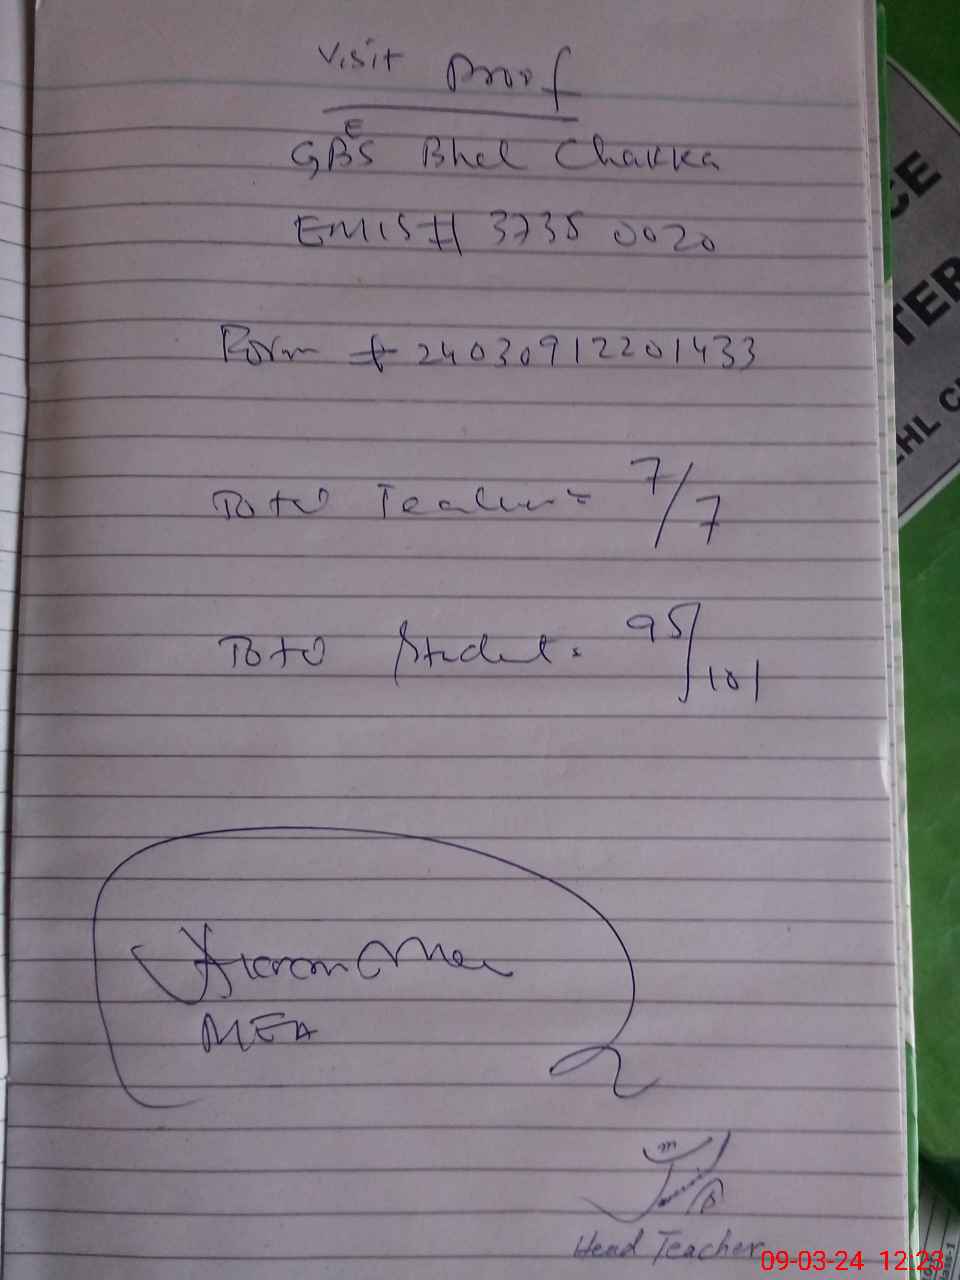 Visit Proof
E
GBS Bhel Chakka
EMIS# 37350020
Form # 240309122201433
Total Teacher = 7/7
Total Student = 95/101
Akram
MEA
Head Teacher
09-03-24 12:23
CE
TER
EHL C